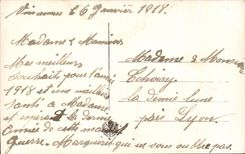 le 6 Janvier 1918.
Madame & Monsieur
Mes meilleurs
souhaits pour l'année
1918 et une meilleure
santé à Madame
et surtout la dernière
Année de cette maudite
Guerre. Marguerite qui ne vous oublie pas.
Madame & Monsieur
la demi lune
près Lyon